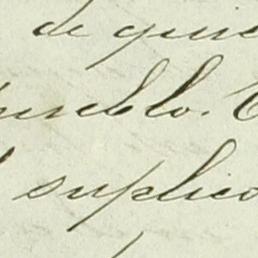 de quie
pueblo.
suplico